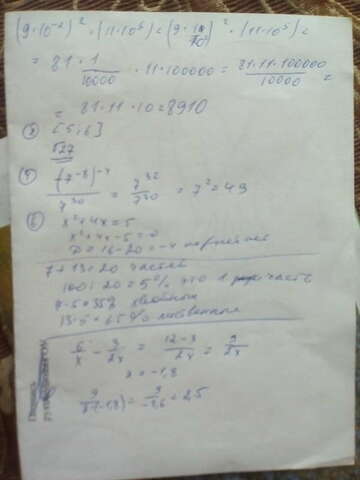 (9·10⁻²)² · (11·10⁵) = (9·1/10²)² · (11·10⁵) =
= 81·1/10000 · 11·100000 = 81·11·100000/10000 =
= 81·11·10=8910
[5;6]
√27
⑤ (7⁻⁸)⁻⁴/7³⁰ = 7³²/7³⁰ = 7² = 49
⑥ x²+4x=5
x²+4x-5=0
D=16-20=-4 корней нет
7+13=20 частей
100:20=5% это 1 часть
7·5=35% хвойных
13·5=65% лиственные
6/x - 3/2x = 12-3/2x = 9/2x
x=-1,8
9/2(-1,8) = 9/-3,6 = 2,5